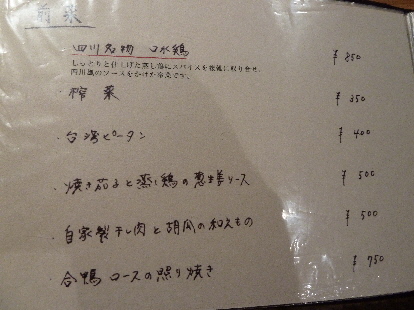 前菜
四川名物 口水鶏 ¥850
しっとりと仕上げた蒸し鶏にスパイスを複雑に取り合せ、
四川風のソースをかけた冷菜です。
・榨菜 ¥350
・台湾ピータン ¥400
・焼き茄子と蒸し鶏の葱生姜ソース ¥500
・自家製干し肉と胡瓜の和えもの ¥500
・合鴨ロースの照り焼き ¥750